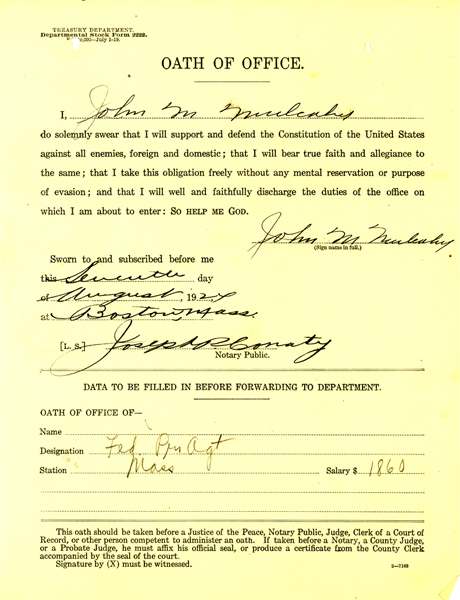 TREASURY DEPARTMENT.
Departmental Stock Form 2222.
July 5-19.
OATH OF OFFICE.
I, John M Mulcahy
do solemnly swear that I will support and defend the Constitution of the United States
against all enemies, foreign and domestic; that I will bear true faith and allegiance to
the same; that I take this obligation freely without any mental reservation or purpose
of evasion; and that I will well and faithfully discharge the duties of the office on
which I am about to enter: SO HELP ME GOD.
John M Mulcahy
(Sign name in full.)
Sworn to and subscribed before me
this Seventh day
of August, 192
at Boston, Mass.
[L. S.] Joseph P Conaty
Notary Public.
DATA TO BE FILLED IN BEFORE FORWARDING TO DEPARTMENT.
OATH OF OFFICE OF—
Name
Designation Fed. Pro Agt
Station Mass Salary $ 1860
This oath should be taken before a Justice of the Peace, Notary Public, Judge, Clerk of a Court of
Record, or other person competent to administer an oath. If taken before a Notary, a County Judge,
or a Probate Judge, he must affix his official seal, or produce a certificate from the County Clerk
accompanied by the seal of the court.
Signature by (X) must be witnessed.
2—7163